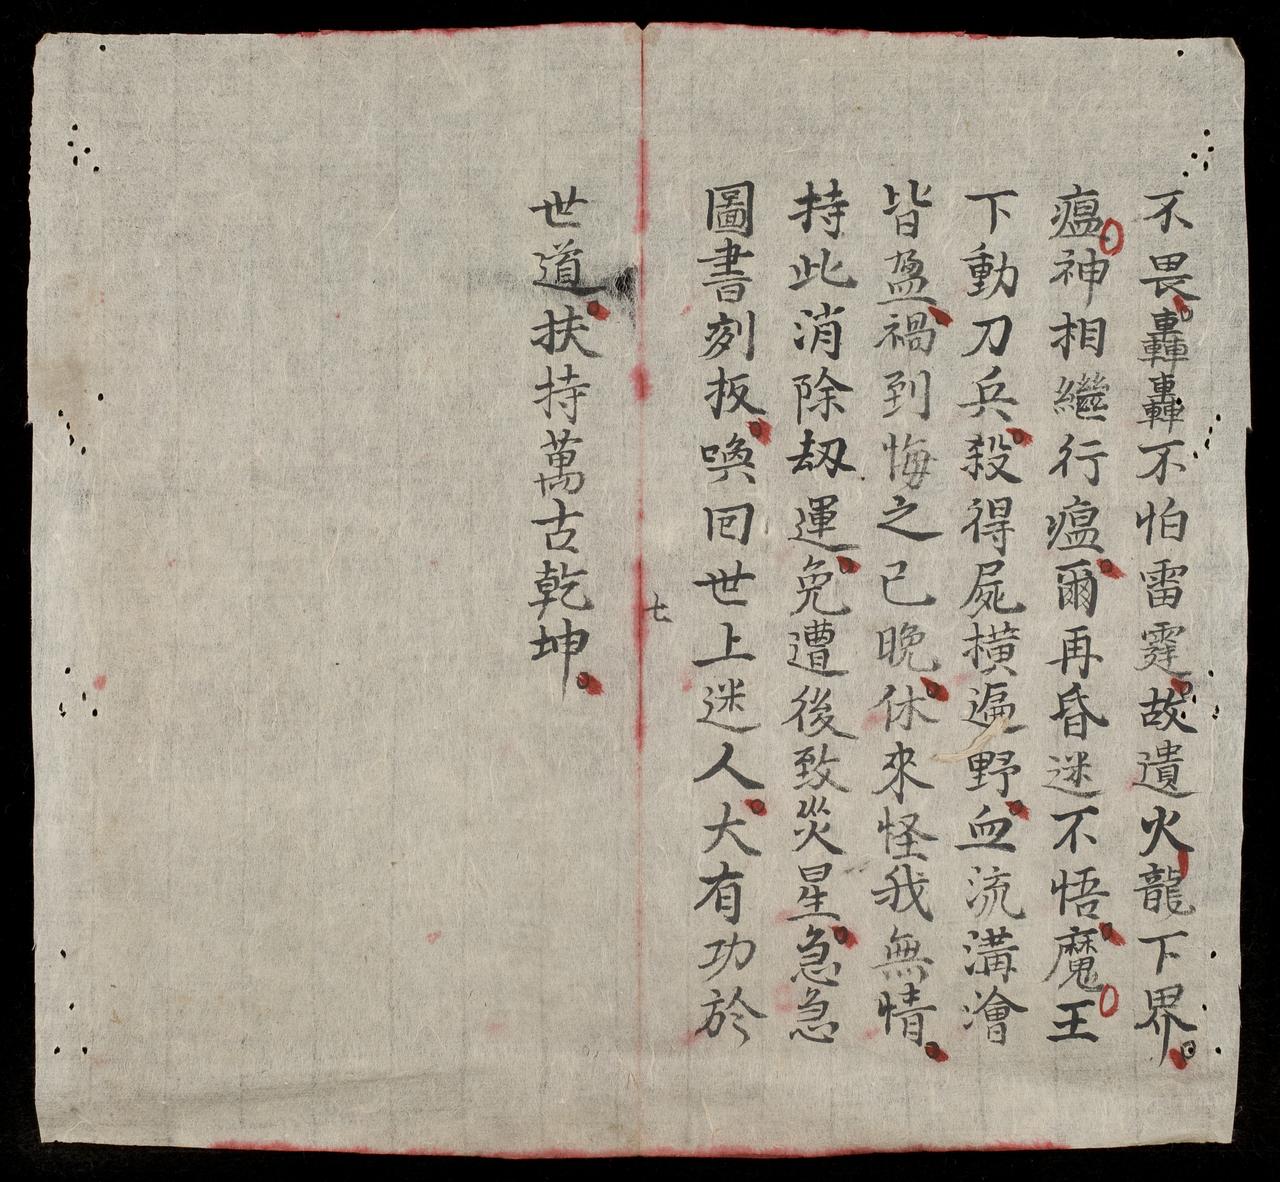 不畏轟轟不怕雷霆故遺火龍下界
瘟神相繼行瘟爾再昏迷不悟魔王
下動刀兵殺得屍橫遍野血流溝澮
皆盈禍到悔之已晚休來怪我無情
持此消除刼運免遭後致災星急急
圖書刻板喚回世上迷人大有功於
七
世道扶持萬古乾坤